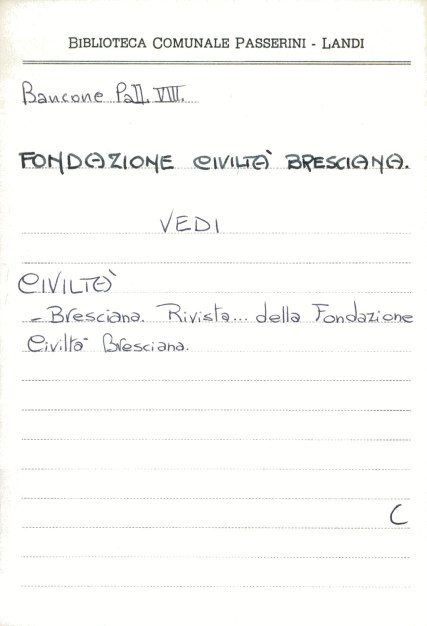 BIBLIOTECA COMUNALE PASSERINI - LANDI
Bancone Pall. VIII.
FONDAZIONE CIVILTÀ BRESCIANA.
VEDI
CIVILTÀ
- Bresciana. Rivista... della Fondazione
Civiltà Bresciana.
C